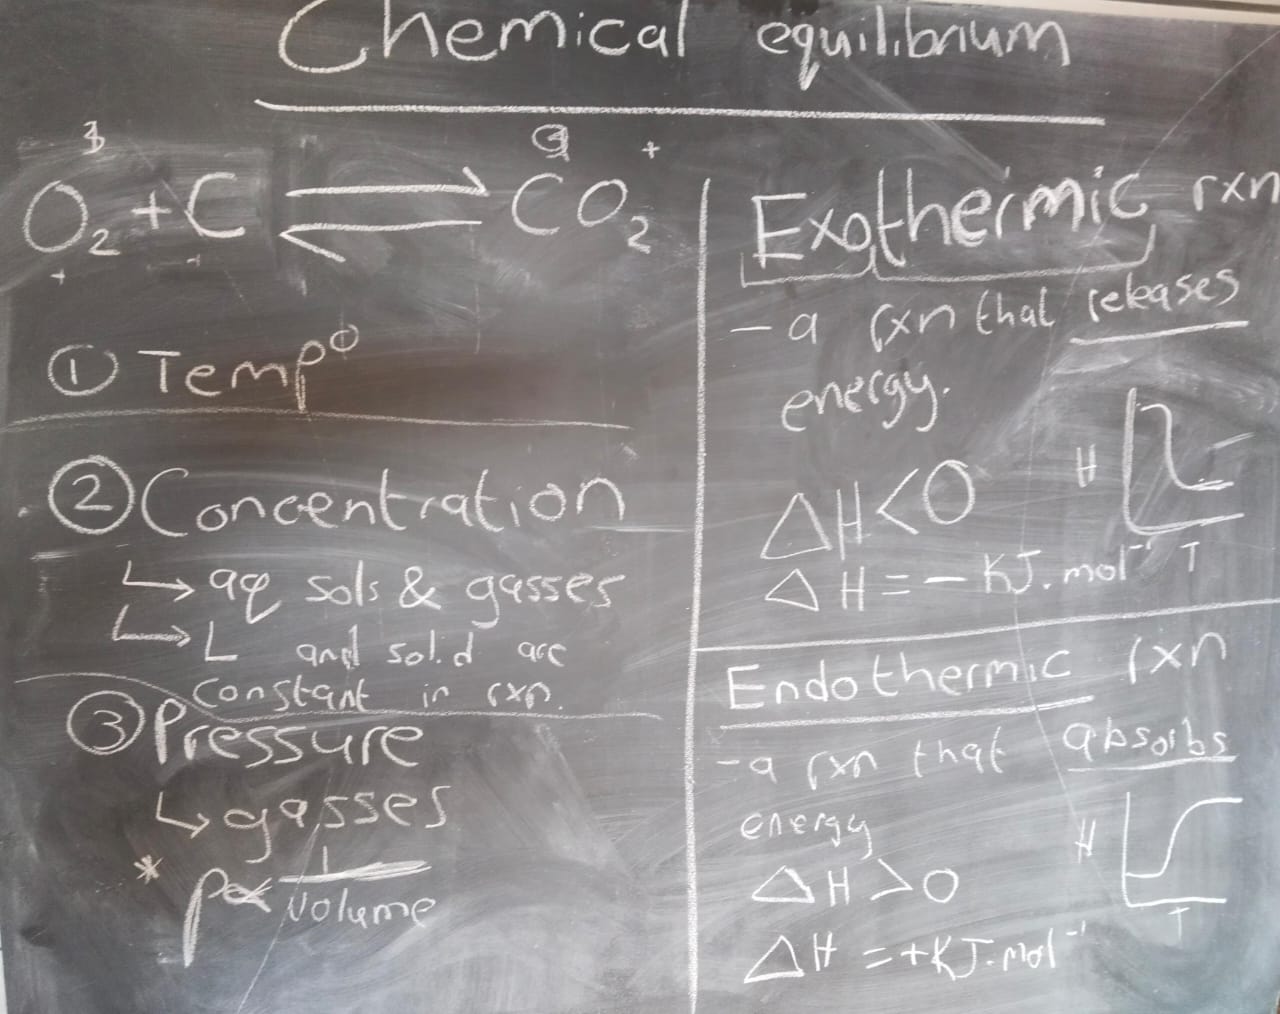 Chemical equilibrium
O₂ + C ⇌ CO₂
+ + +
① Temp
② Concentration
↳ aq sols & gasses
↳ L and solid are
constant in rxn.
③ Pressure
↳ gasses
* p ∝ 1
Volume
Exothermic rxn
- a rxn that releases
energy.
ΔH < 0
H
T
ΔH = - KJ.mol⁻¹
Endothermic rxn
- a rxn that absorbs
energy
H
T
ΔH > 0
ΔH = + KJ.mol⁻¹